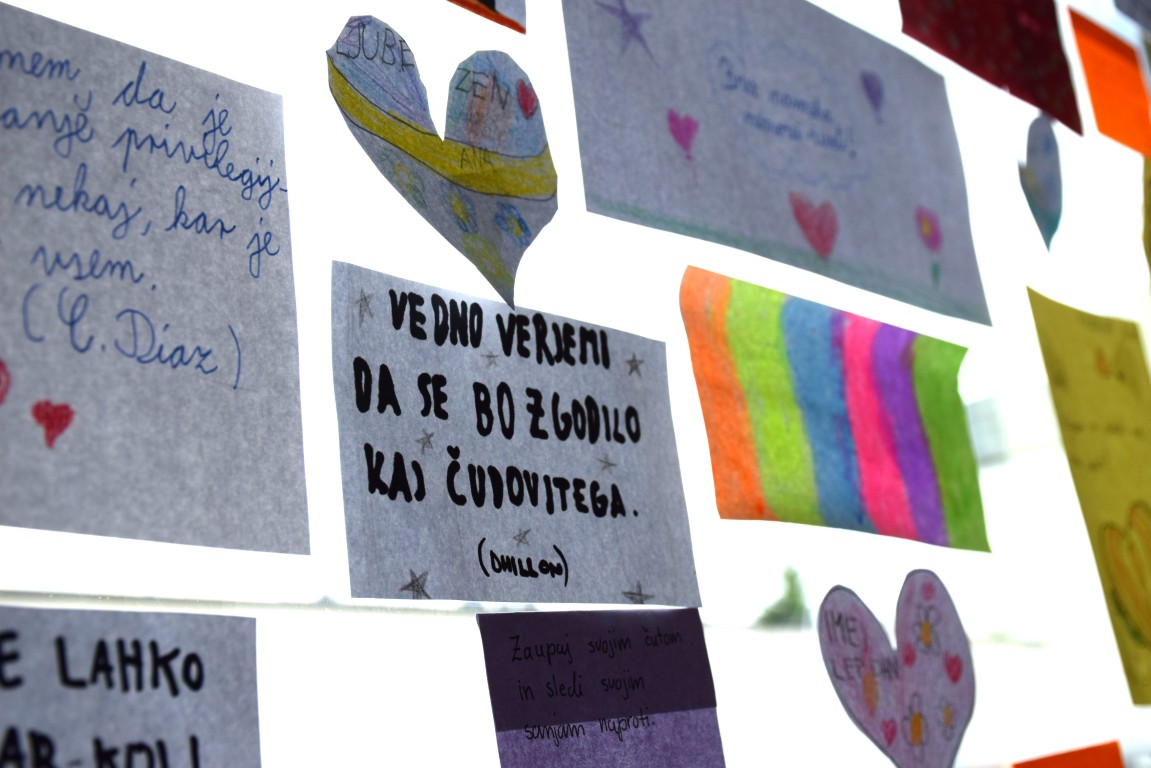 mem, da je
anje privilegij-
nekaj, kar je
vsem.
(C. Diaz)
LJUBE
ZEN
ANA
VEDNO VERJEMI
DA SE BO ZGODILO
KAJ ČUDOVITEGA.
(DHILLON)
E LAHKO
AR-KOLI
Zaupaj svojim čutom
in sledi svojim
sanjam naproti.
IME
LEP DAN